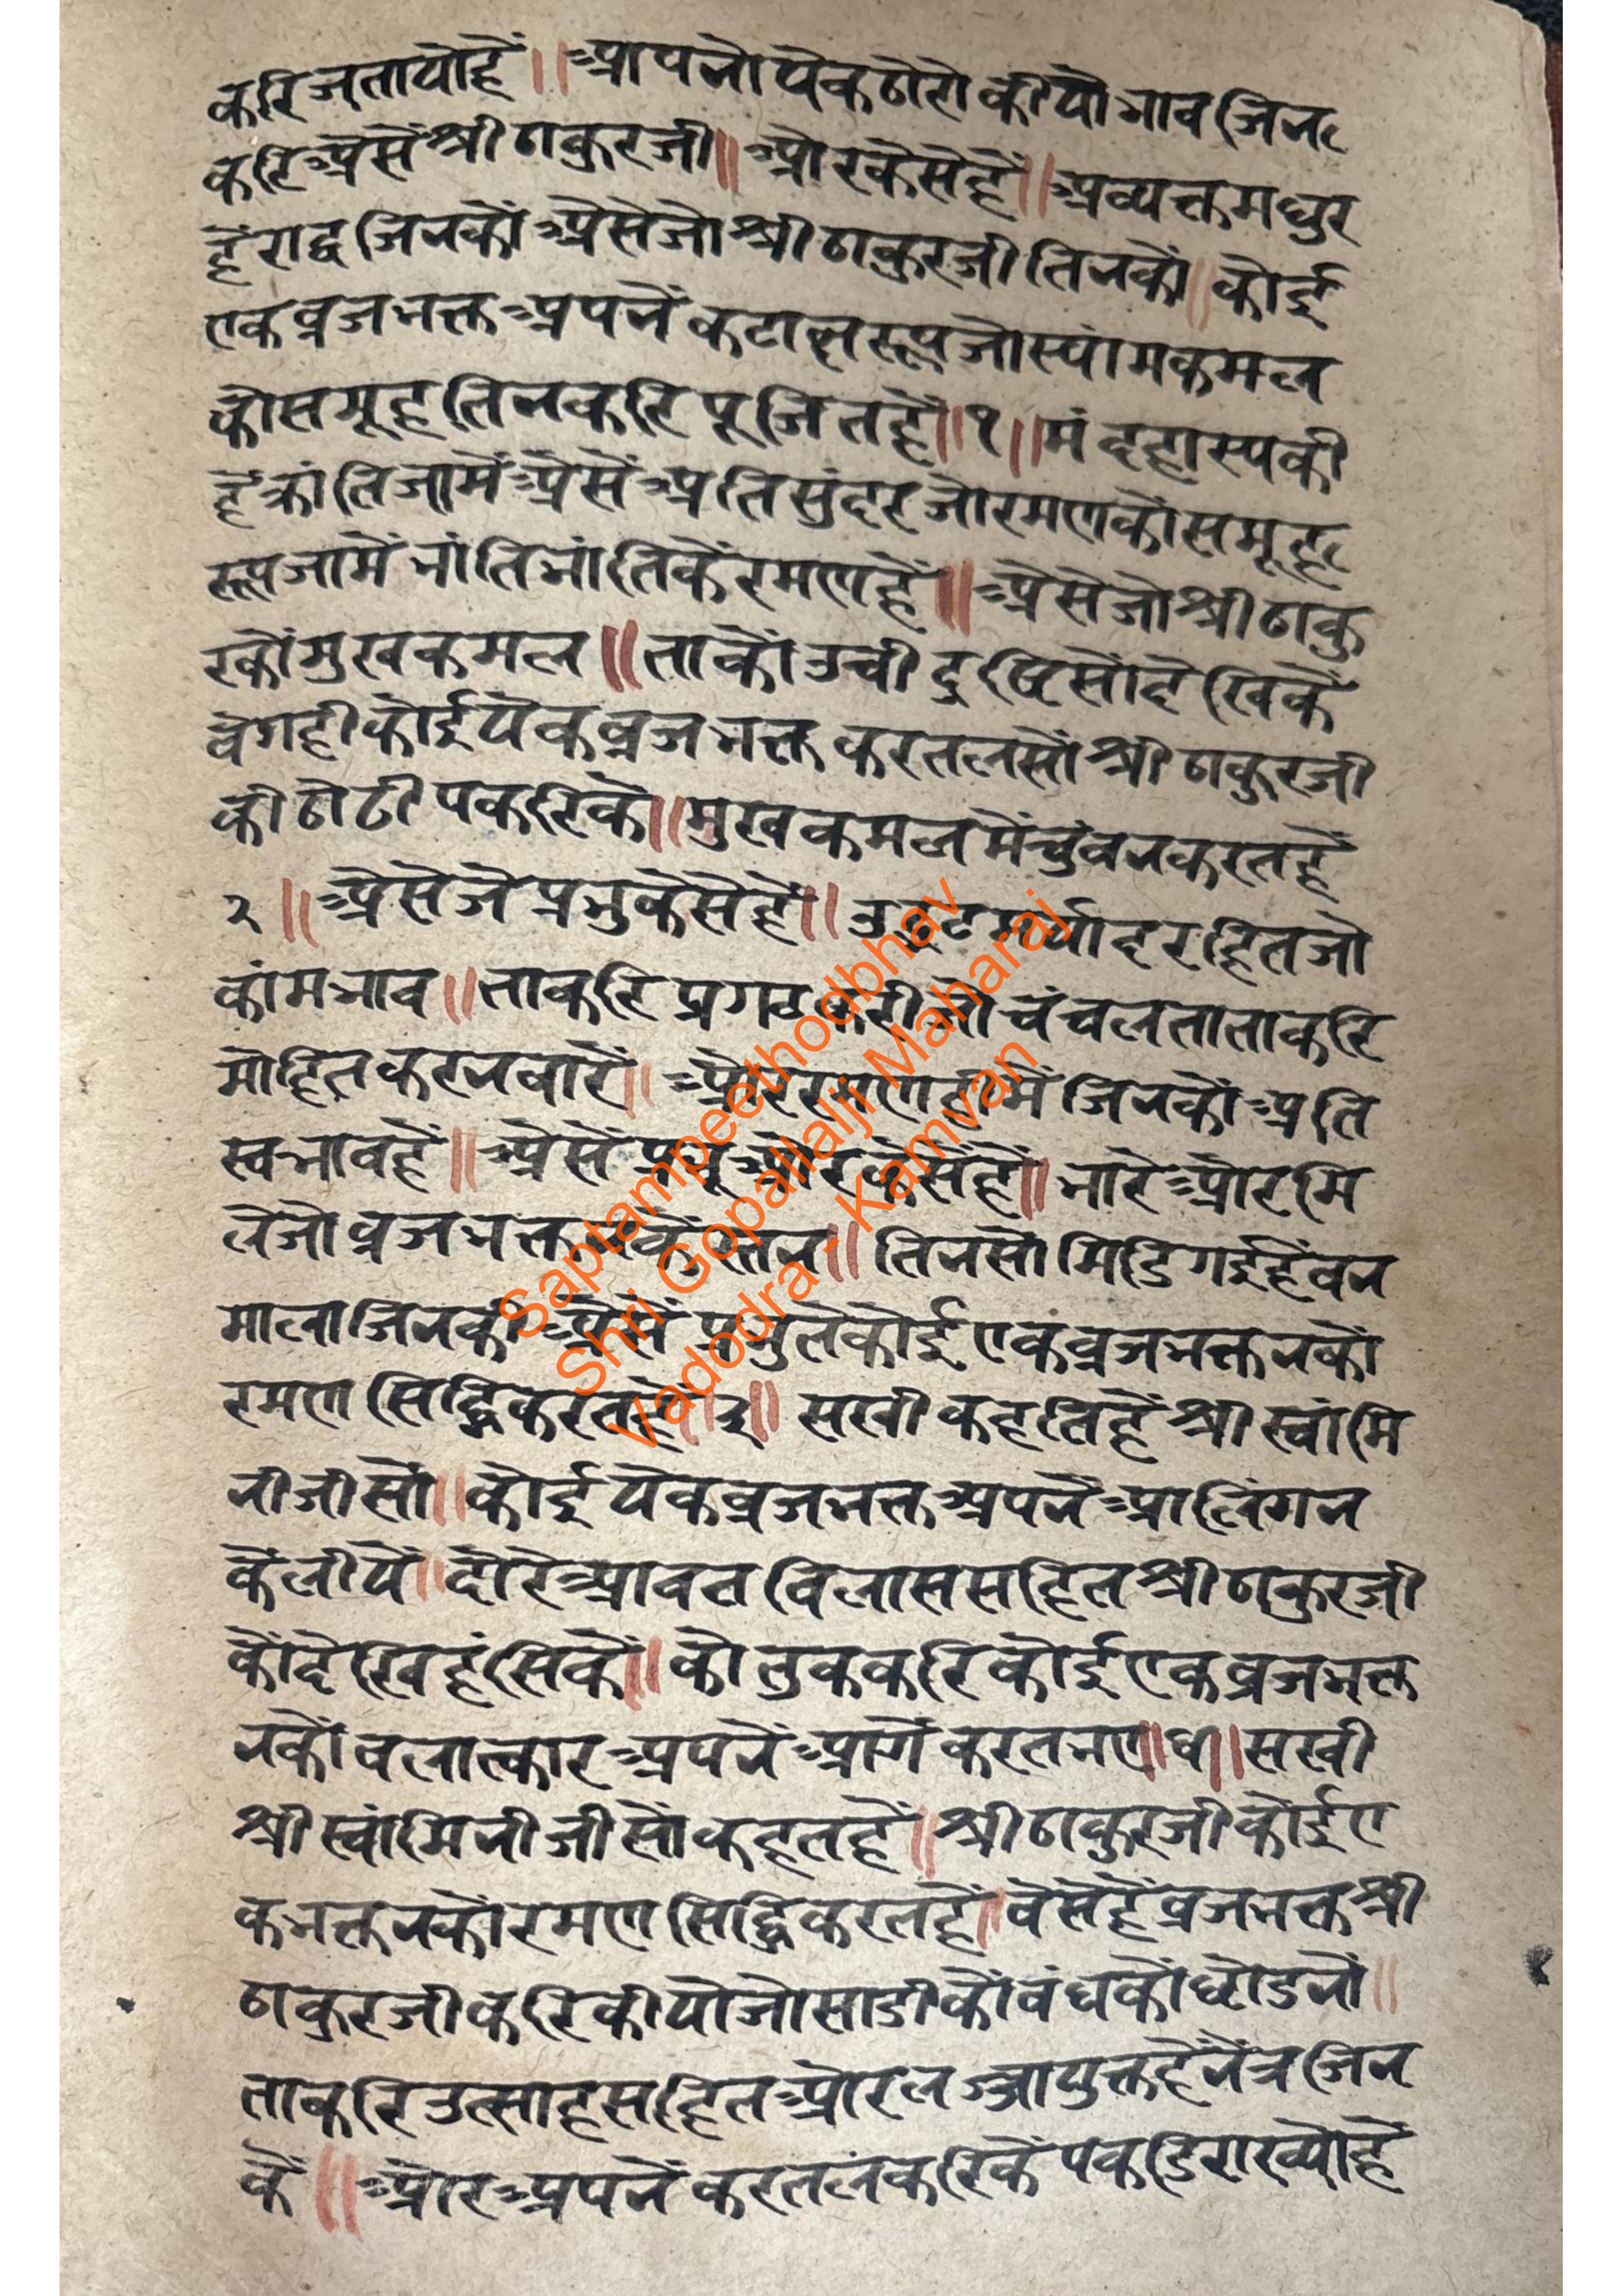 करिजतायोहैं॥आपनोयेकठोरोकीयोभावजिन
करिअैसेंश्रीठाकुरजी॥औरकैसेहैं॥अव्यक्तमधुर
हैंशब्दजिनकोंअैसेजोश्रीठाकुरजीतिनकों॥कोई
एकव्रजभक्तअपनेंकटाक्षरूपजोस्यांमकमल
कोसमूहतिनकरिपूजितहैं॥१॥मंदहास्यकी
हैंक्रांतिजामेंअैसेंअतिसुंदरजोरमणकोसमूह
रूपजामेंभांतिभांतिकेंरमणहैं॥अैसेजोश्रीठाकु
रकोंमुखकमल॥ताकोंउंचीदृष्टिसोंदेखिकें
वेगहीकोईयेकव्रजभक्तकरतलसोंश्रीठाकुरजी
कीठोढीपकरिकें॥मुखकमलमेंचुंबनकरतहैं
२॥अैसेजेप्रभुकैसेहैं॥उद्भटमर्यादरहितजो
कांमभाव॥ताकरिप्रगटकरीजोचंचलताताकरि
मोहितकरनवारे॥औररमणहीमेंजिनकोंअति
स्वभावहैं॥अैसेंप्रभूऔरकैसेंहैं॥भारेऔरमि
लेजोव्रजभक्तनकेंस्तन॥तिनसोंमिडिगईहैंवन
मालाजिनकीअैसेंप्रभुतेकोईएकव्रजभक्तनकों
रमणसिद्धिकरतहैं॥३॥सखीकहतिहैंश्रीस्वांमि
नीजीसों॥कोईयेकव्रजभक्तअपनेंआलिंगन
केंलीयें॥दौरेआवतविलाससहितश्रीठाकुरजी
कोंदेखिहंसिकें॥कोतुककरिकोईएकव्रजभक्त
नकोंबलात्कारअपनेंआगेंकरतभए॥४॥सखी
श्रीस्वांमिनीजीसोंकहतहैं॥श्रीठाकुरजीकोईए
कभक्तनकोंरमणसिद्धिकरतहैं॥वेसेहैंव्रजभक्तश्री
ठाकुरजीकरिकीयोजोसाडीकोंबंधकोंछोडनों॥
ताकरिउत्साहसहितऔरलज्जायुक्तहैंनेत्रजिन
कें॥औरअपनेंकरतलकरिकेंपकडिराख्योहैं
Saptampeethodbhav
Shri Gopallalji Maharaj
Vadodra - Kamvan